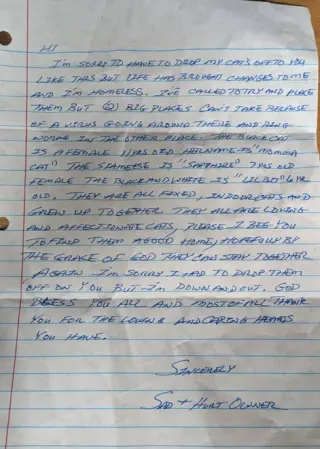 HI
I'M SORRY TO HAVE TO DROP MY CATS OFF TO YOU
LIKE THIS BUT LIFE HAS BROUGHT CHANGES TO ME
AND I'M HOMELESS. I'VE CALLED TO TRY AND PLACE
THEM BUT (2) BIG PLACES CAN'T TAKE BECAUSE
OF A VIRUS GOING AROUND THERE AND RING
WORM IN THE OTHER PLACE. THE BLACK CAT
IS A FEMALE 11 YRS OLD HER NAME IS "MOMMA
CAT" THE SIAMEESE IS "SAPPHIRE" 7 YRS OLD
FEMALE THE BLACK AND WHITE IS "LIL BIT" 6 YR
OLD. THEY ARE ALL FIXED, INDOOR CATS AND
GREW UP TOGETHER THEY ALL ARE LOVING
AND AFFECTIONATE CATS, PLEASE I BEG YOU
TO FIND THEM A GOOD HOME, HOPEFULLY BY
THE GRACE OF GOD THEY CAN STAY TOGETHER
AGAIN I'M SORRY I HAD TO DROP THEM
OFF ON YOU BUT I'M DOWN AND OUT. GOD
BLESS YOU ALL AND MOST OF ALL THANK
YOU FOR THE LOVING AND CARING HEARTS
YOU HAVE.
SINCERELY
SAD + HURT OWNER